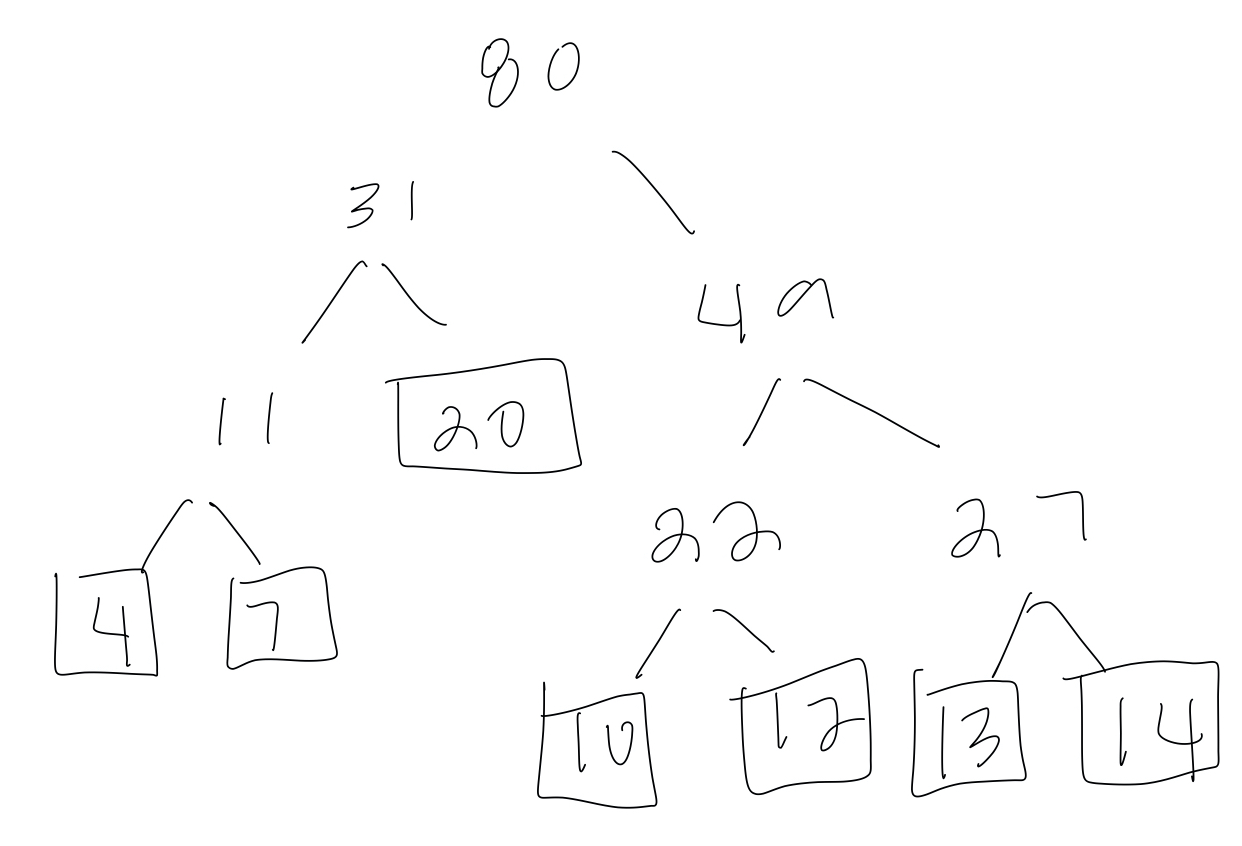 80
31
49
11
20
22
27
4
7
10
12
13
14